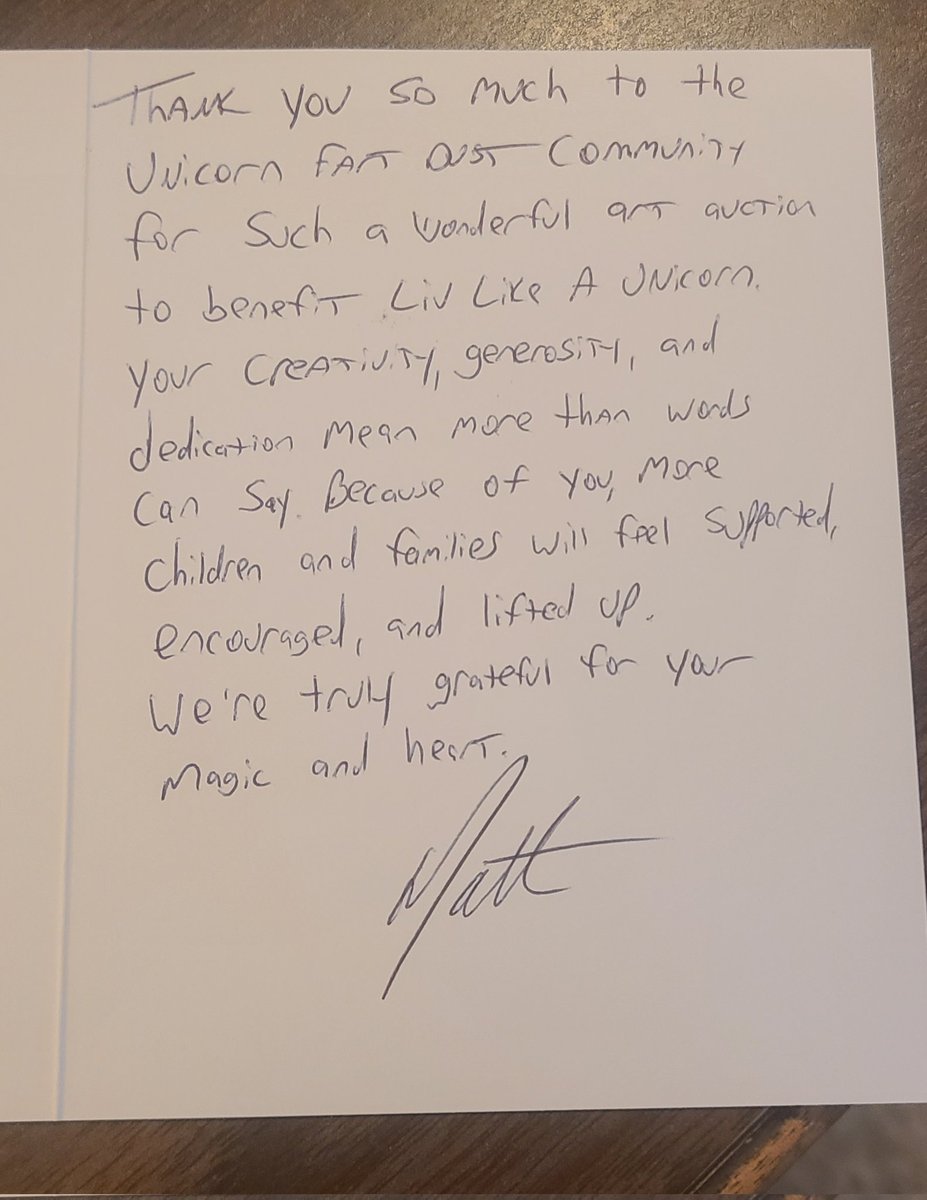 Thank you so much to the
Unicorn Fart Dust Community
for such a wonderful art auction
to benefit Liv Like A Unicorn.
Your creativity, generosity, and
dedication mean more than words
can say. Because of you, more
children and families will feel supported,
encouraged, and lifted up.
We're truly grateful for your
magic and heart.
Matt